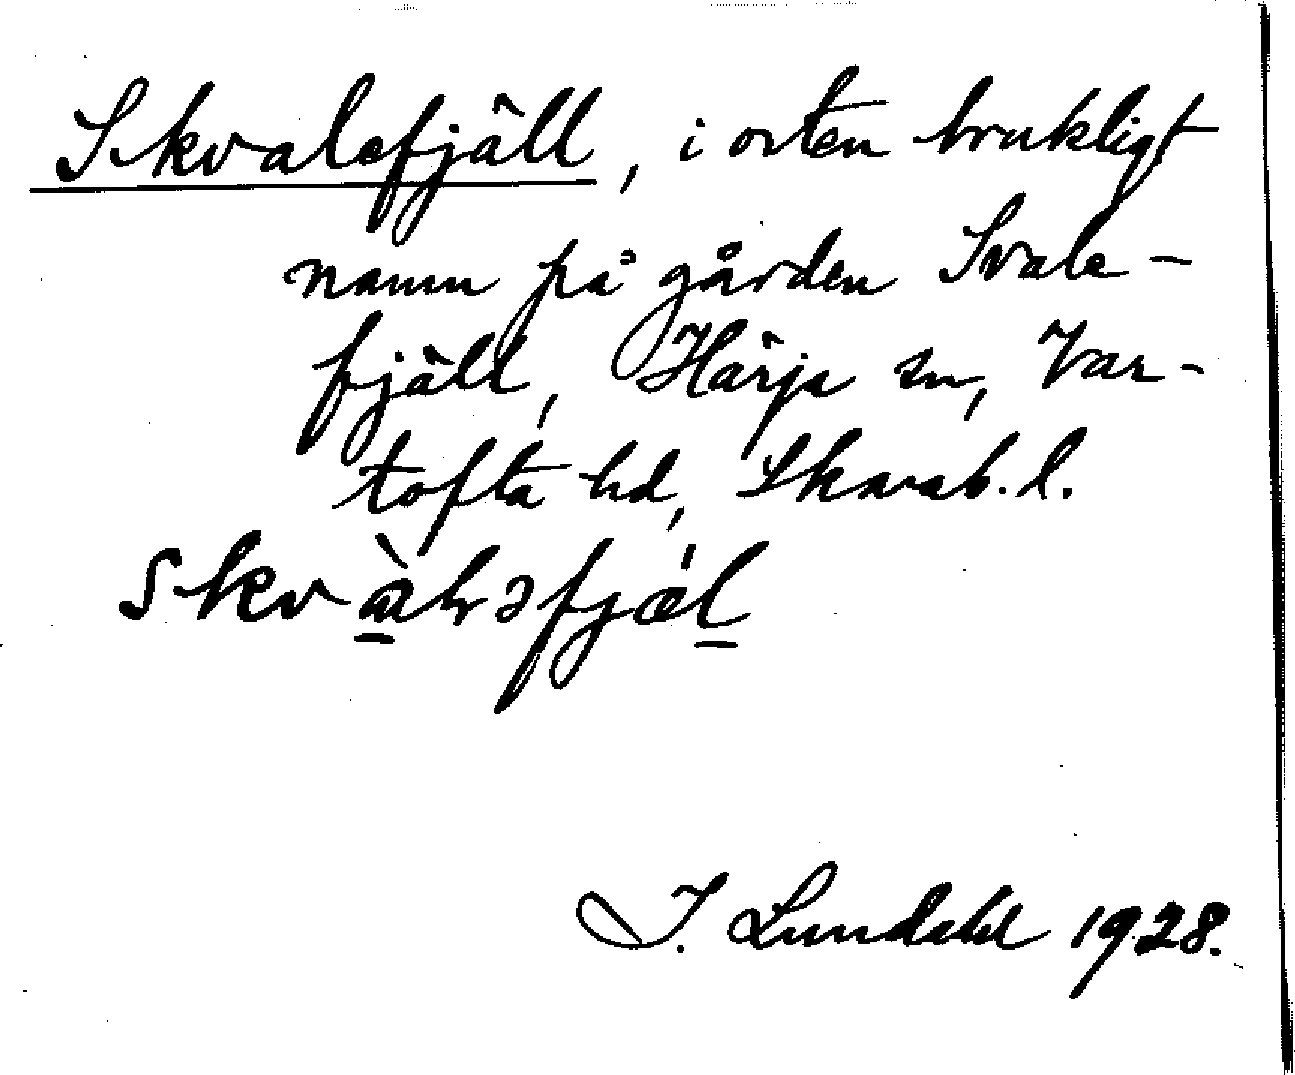 Skvalefjäll, i orten brukligt
namn på gården Svale-
fjäll, Härja sn, Var-
tofta hd, Skarab. l.
I. Lundahl 1928.